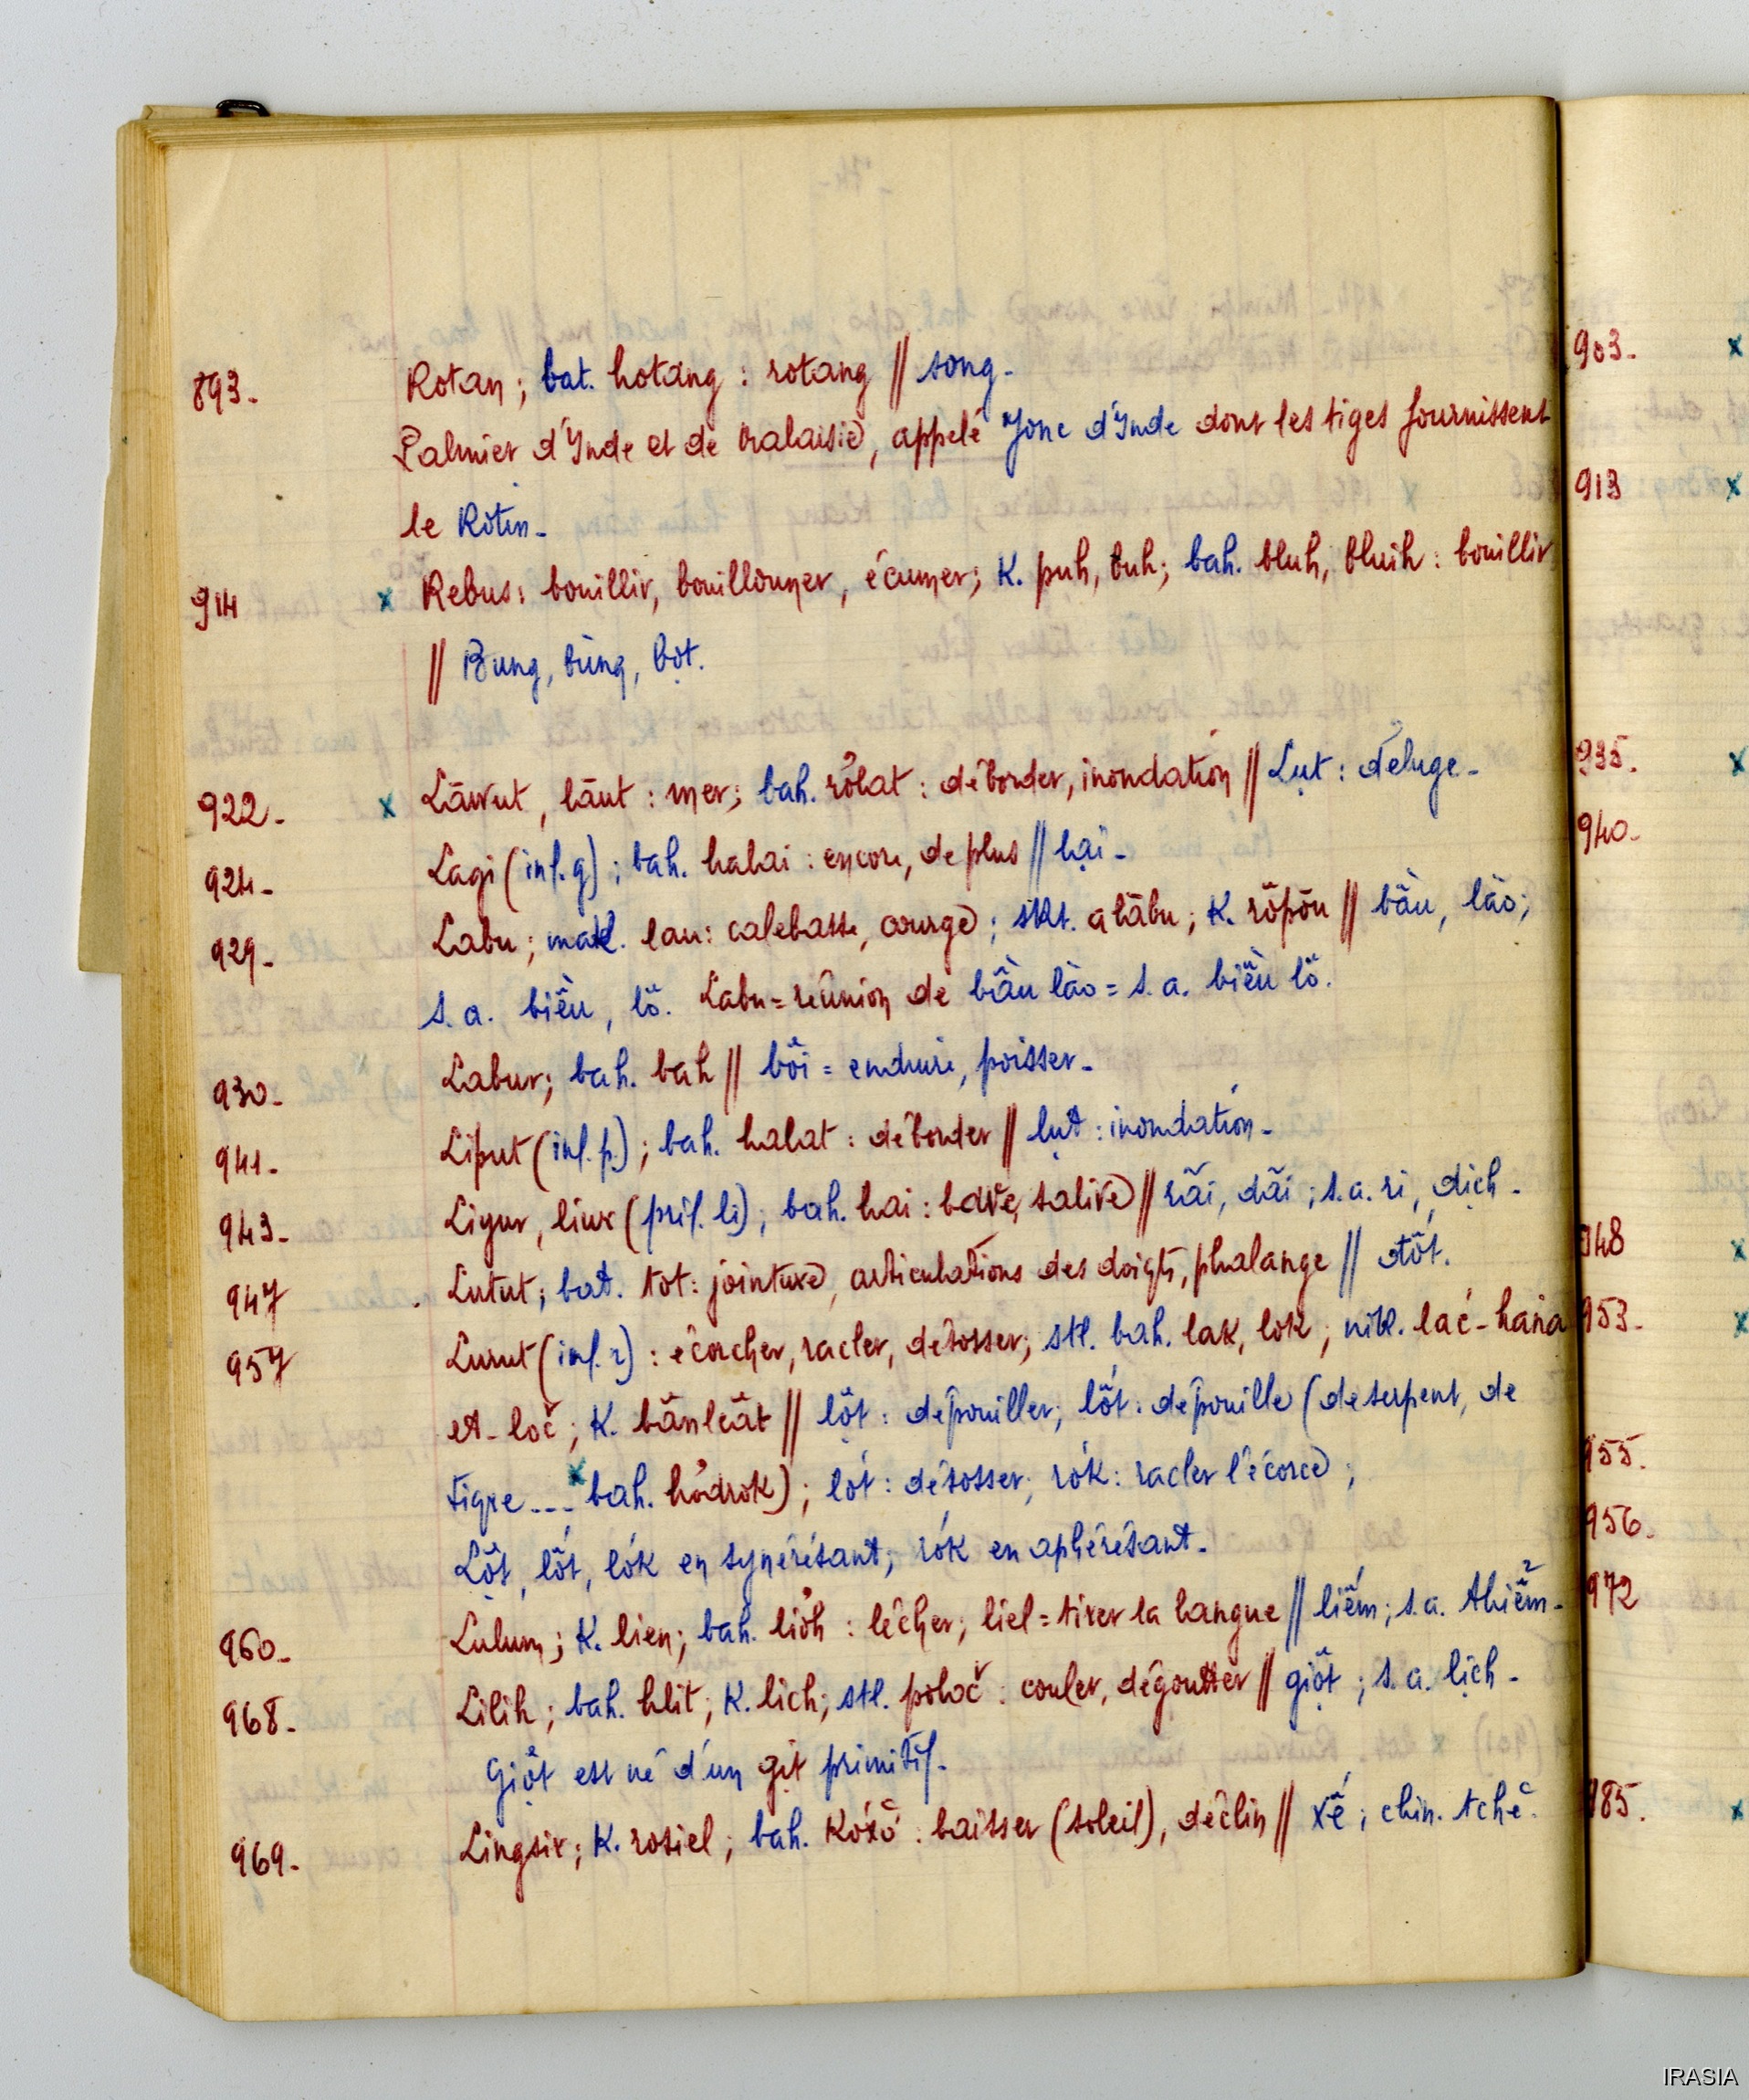 893- Rotan; bat. hotang : rotang // song-
Palmier d'Inde et de Malaisie, appelé Jonc d'Inde dont les tiges fournissent
le Rotin-
914 x Rebus: bouillir, bouillonner, écumer; K. puh, buh; bah. bluh, bluih : bouillir
// Bung, bùng, bọt.
922- x Lāwut, lāut : mer; bah. rơ̆lat : déborder, inondation // Lụt : déluge-
924- Lagi (inf. g); bah. halai : encore, de plus // lại-
929- Labu; mak. lau: calebasse, courge; skt. alābu; K. rŏpŏu // bầu, lào;
s. a. biều, lô. Labu = réunion de bầu lào = s. a. biều lô.
930- Labur; bah. bah // bôi = enduire, poisser-
941- Liput (inf. p.); bah. halat : déborder // lụt : inondation-
943- Liyur, liur (préf. li); bah. hai : bave, salive // rãi, dãi; s. a. ri, dịch-
947 Lutut; bat. tot: jointure, articulations des doigts, phalange // đốt.
957 Lurut (inf. r) : écorcher, racler, désosser; stl. bah. lak, lok; nik. lač-haṅa
et-loč; K. bănlĕăt // lột : dépouiller; lốt : dépouille (de serpent, de
tigre --- x bah. hơdrok); lót : désosser; rók : racler l'écorce;
Lột, lốt, lók en synérésant; rók en aphérésant-
960- Lulum; K. lien; bah. liơh : lécher; liel = tirer la langue // liếm; s. a. thiểm-
968- Lilih; bah. hlit; K. lich; stl. pơhoč : couler, dégoutter // giột; s. a. lịch-
Giột est né d'un gịt primitif-
969- Lingsir; K. rosiel; bah. Kóxŏ : baisser (soleil), déclin // xế; chin. tchĕ-
903- x
913 x
935. x
940-
948 x
953- x
955-
956-
972
985. x
IRASIA